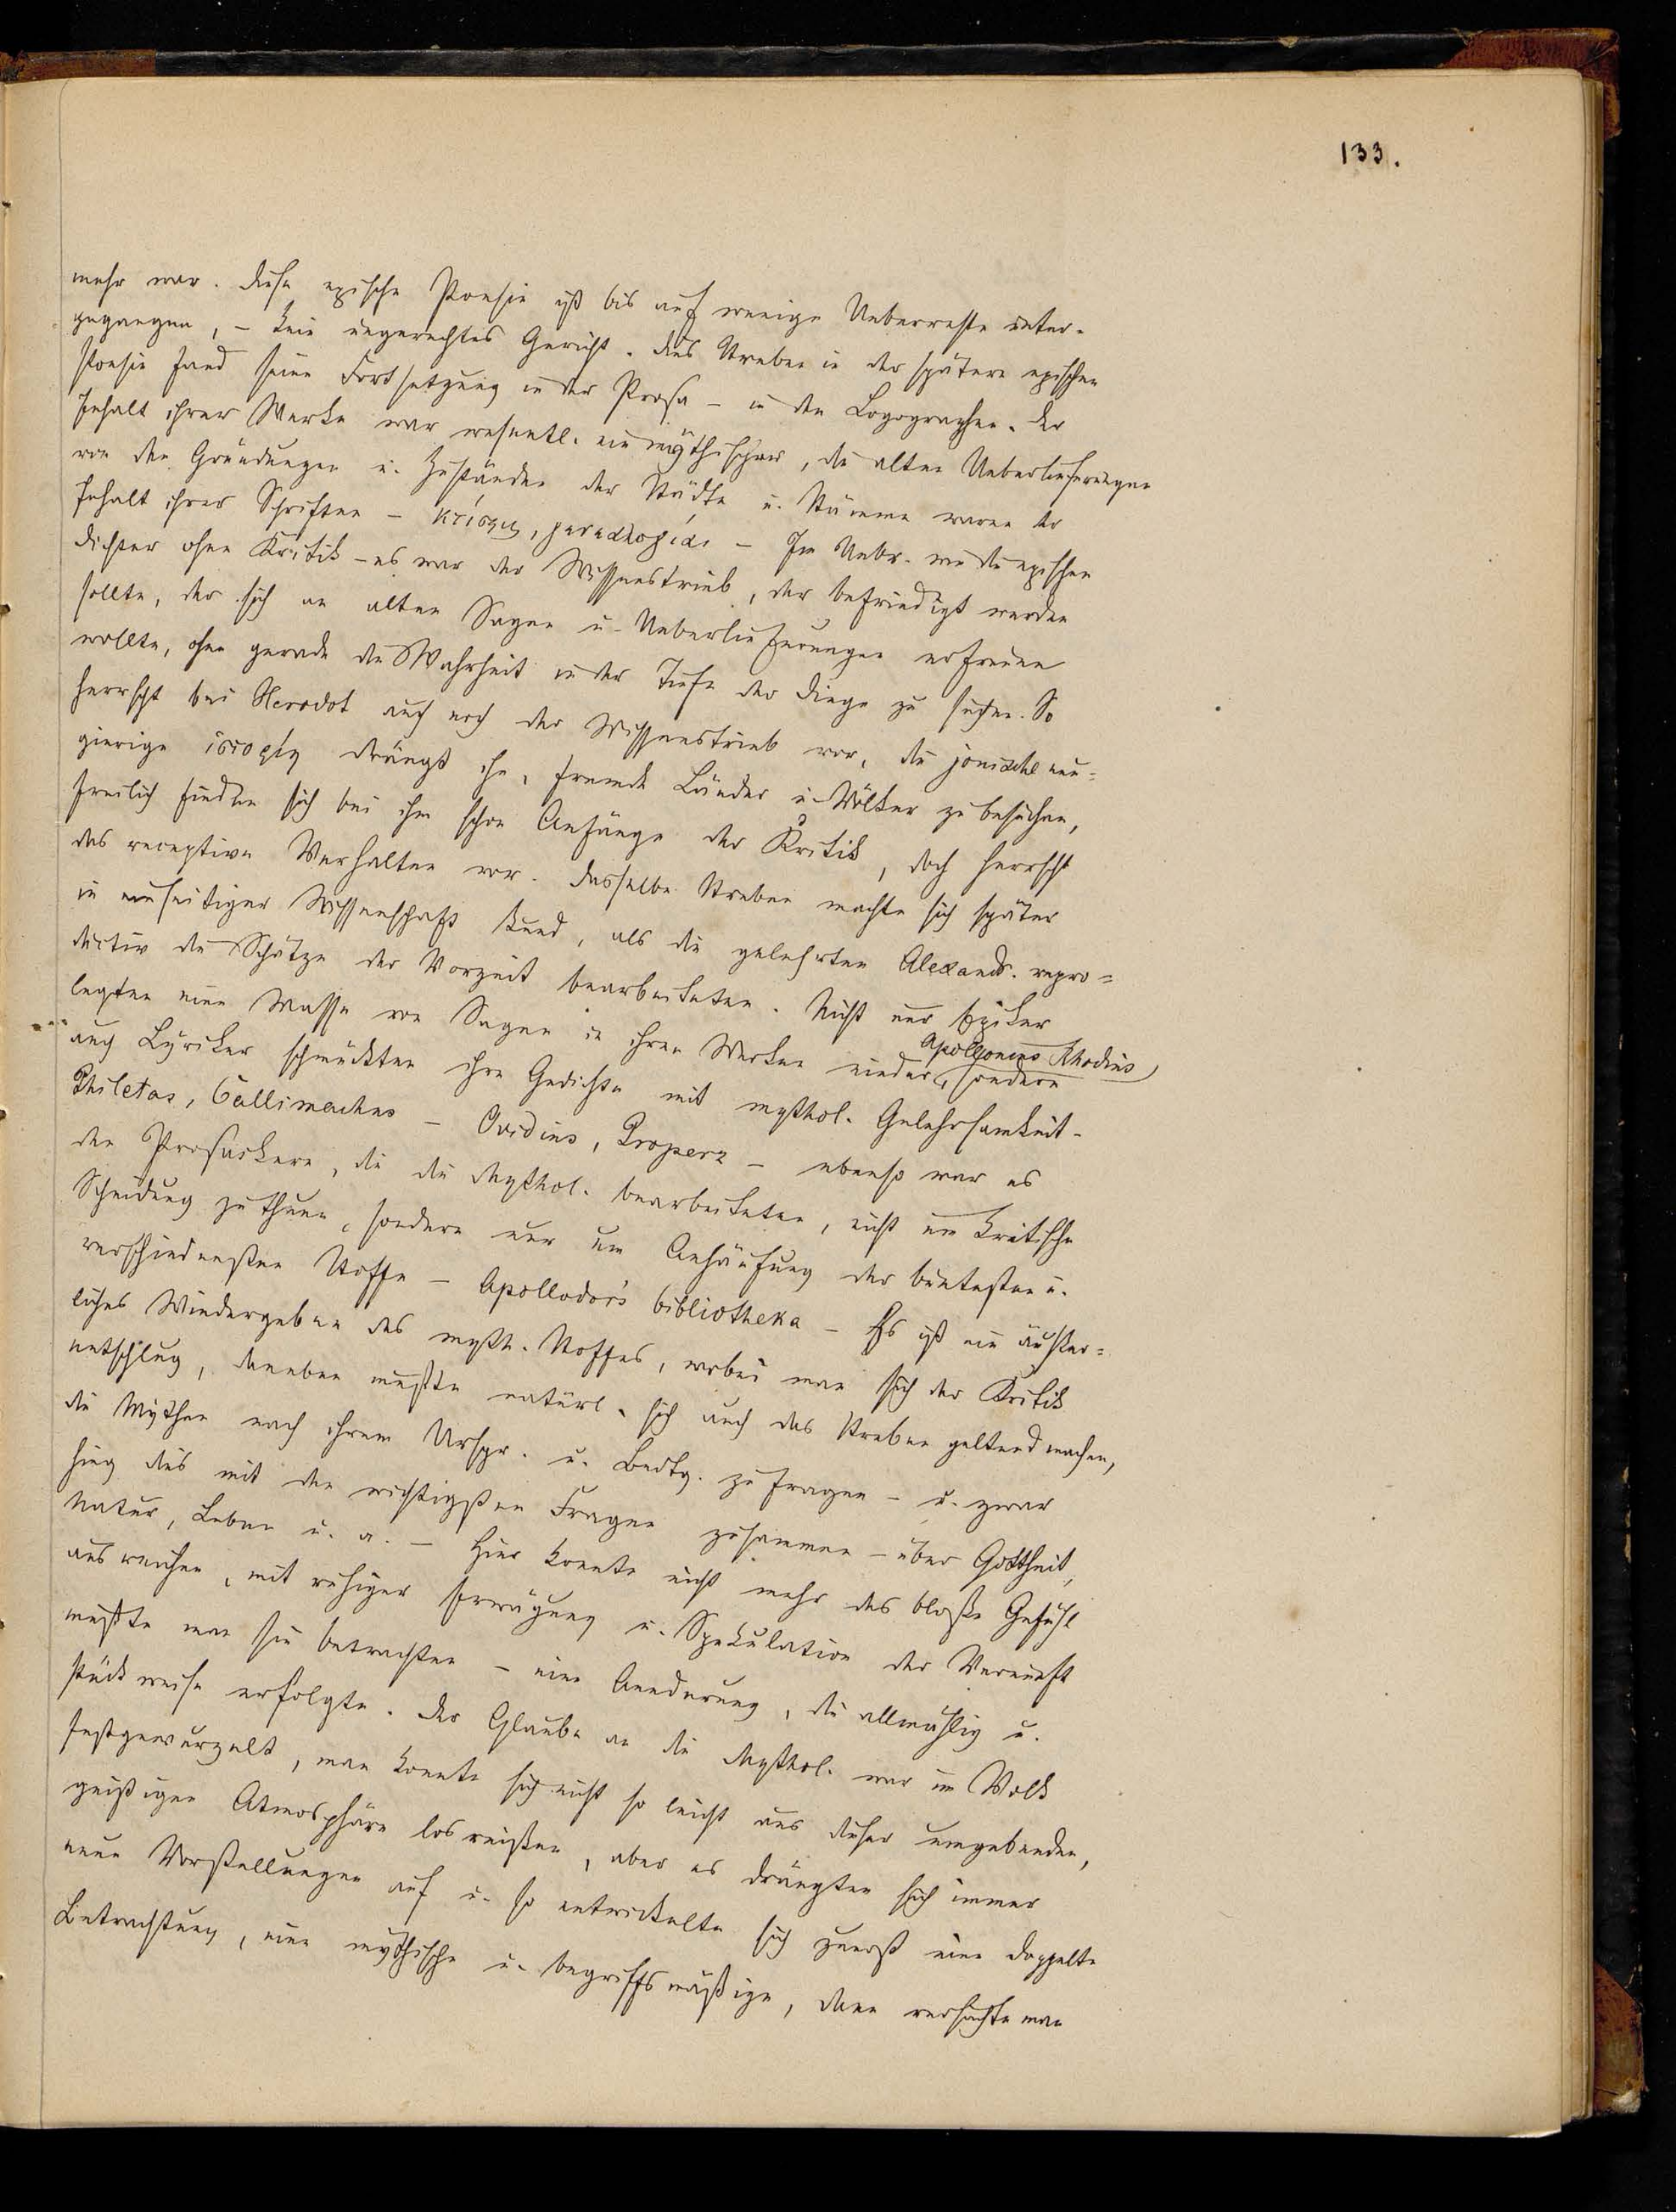 133.
mehr war. Diese epische Poesie ist bis auf wenige Ueberreste unter-
gegangen, – kein ungerechtes Gericht. Das Streben in der spätern epischen
Poesie fand seine Fortsetzung in der Prosa – in den Logographen. Der
Inhalt ihrer Werke war wesentl. ein mythischer, die alten Ueberlieferungen
von den Gründungen u. Zuständen der Städte u. Stämme waren der
Inhalt ihrer Schriften – κτίσεις, γενεαλογίαι – Im Uebr. wie die epischen
Dichter ohne Kritik – es war der Wissenstrieb, der befriedigt werden
sollte, der sich an alten Sagen u. Ueberlieferungen erfreuen
wollte, ohne gerade die Wahrheit in der Tiefe der Dinge zu suchen. So
herrscht bei Herodot auch noch der Wissenstrieb vor, die jonische neu=
gierige ἱστορίη drängt ihn, fremde Länder u. Völker zu besuchen,
freilich finden sich bei ihm schon Anfänge der Kritik, doch herrscht
das receptive Verhalten vor. Dasselbe Streben machte sich später
in einseitiger Wissenschaft kund, als die gelehrten Alexandr. repro=
ductiv die Schätze der Vorzeit bearbeiteten. Nicht nur Epiker
legten eine Masse von Sagen in ihren Werken nieder, Apollonius Rhodius sondern
auch Lyriker schmückten ihre Gedichte mit mythol. Gelehrsamkeit –
Philetas, Callimachus – Ovidius, Properz – ebenso war es
den Prosaikern, die die Mythol. bearbeiteten, nicht um kritische
Scheidung zu thun, sondern nur um Anhäufung der buntesten u.
verschiedensten Stoffe – Apollodor's bibliotheka – Es ist ein äußer=
liches Wiedergeben des myth. Stoffes, wobei man sich der Kritik
entschlug, daneben mußte natürl. sich auch das Streben geltend machen,
die Mythen nach ihrem Urspr. u. Bedtg. zu fragen – u. zwar
hing dies mit den wichtigsten Fragen zusammen – über Gottheit,
Natur, Leben u. a. – Hier konnte nicht mehr das bloße Gefühl
ausreichen, mit ruhiger Erwägung u. Spekulation der Vernunft
mußte man sie betrachten – eine Aenderung, die allmählig u.
stückweise erfolgte. Der Glaube an die Mythol. war im Volk
festgewurzelt, man konnte sich nicht so leicht aus dieser umgebenden,
geistigen Atmosphäre losreißen, aber es drängten sich immer
neue Vorstellungen auf u. so entwickelte sich zuerst eine doppelte
Betrachtung, eine mythische u. begriffsmäßige, dann versuchte man